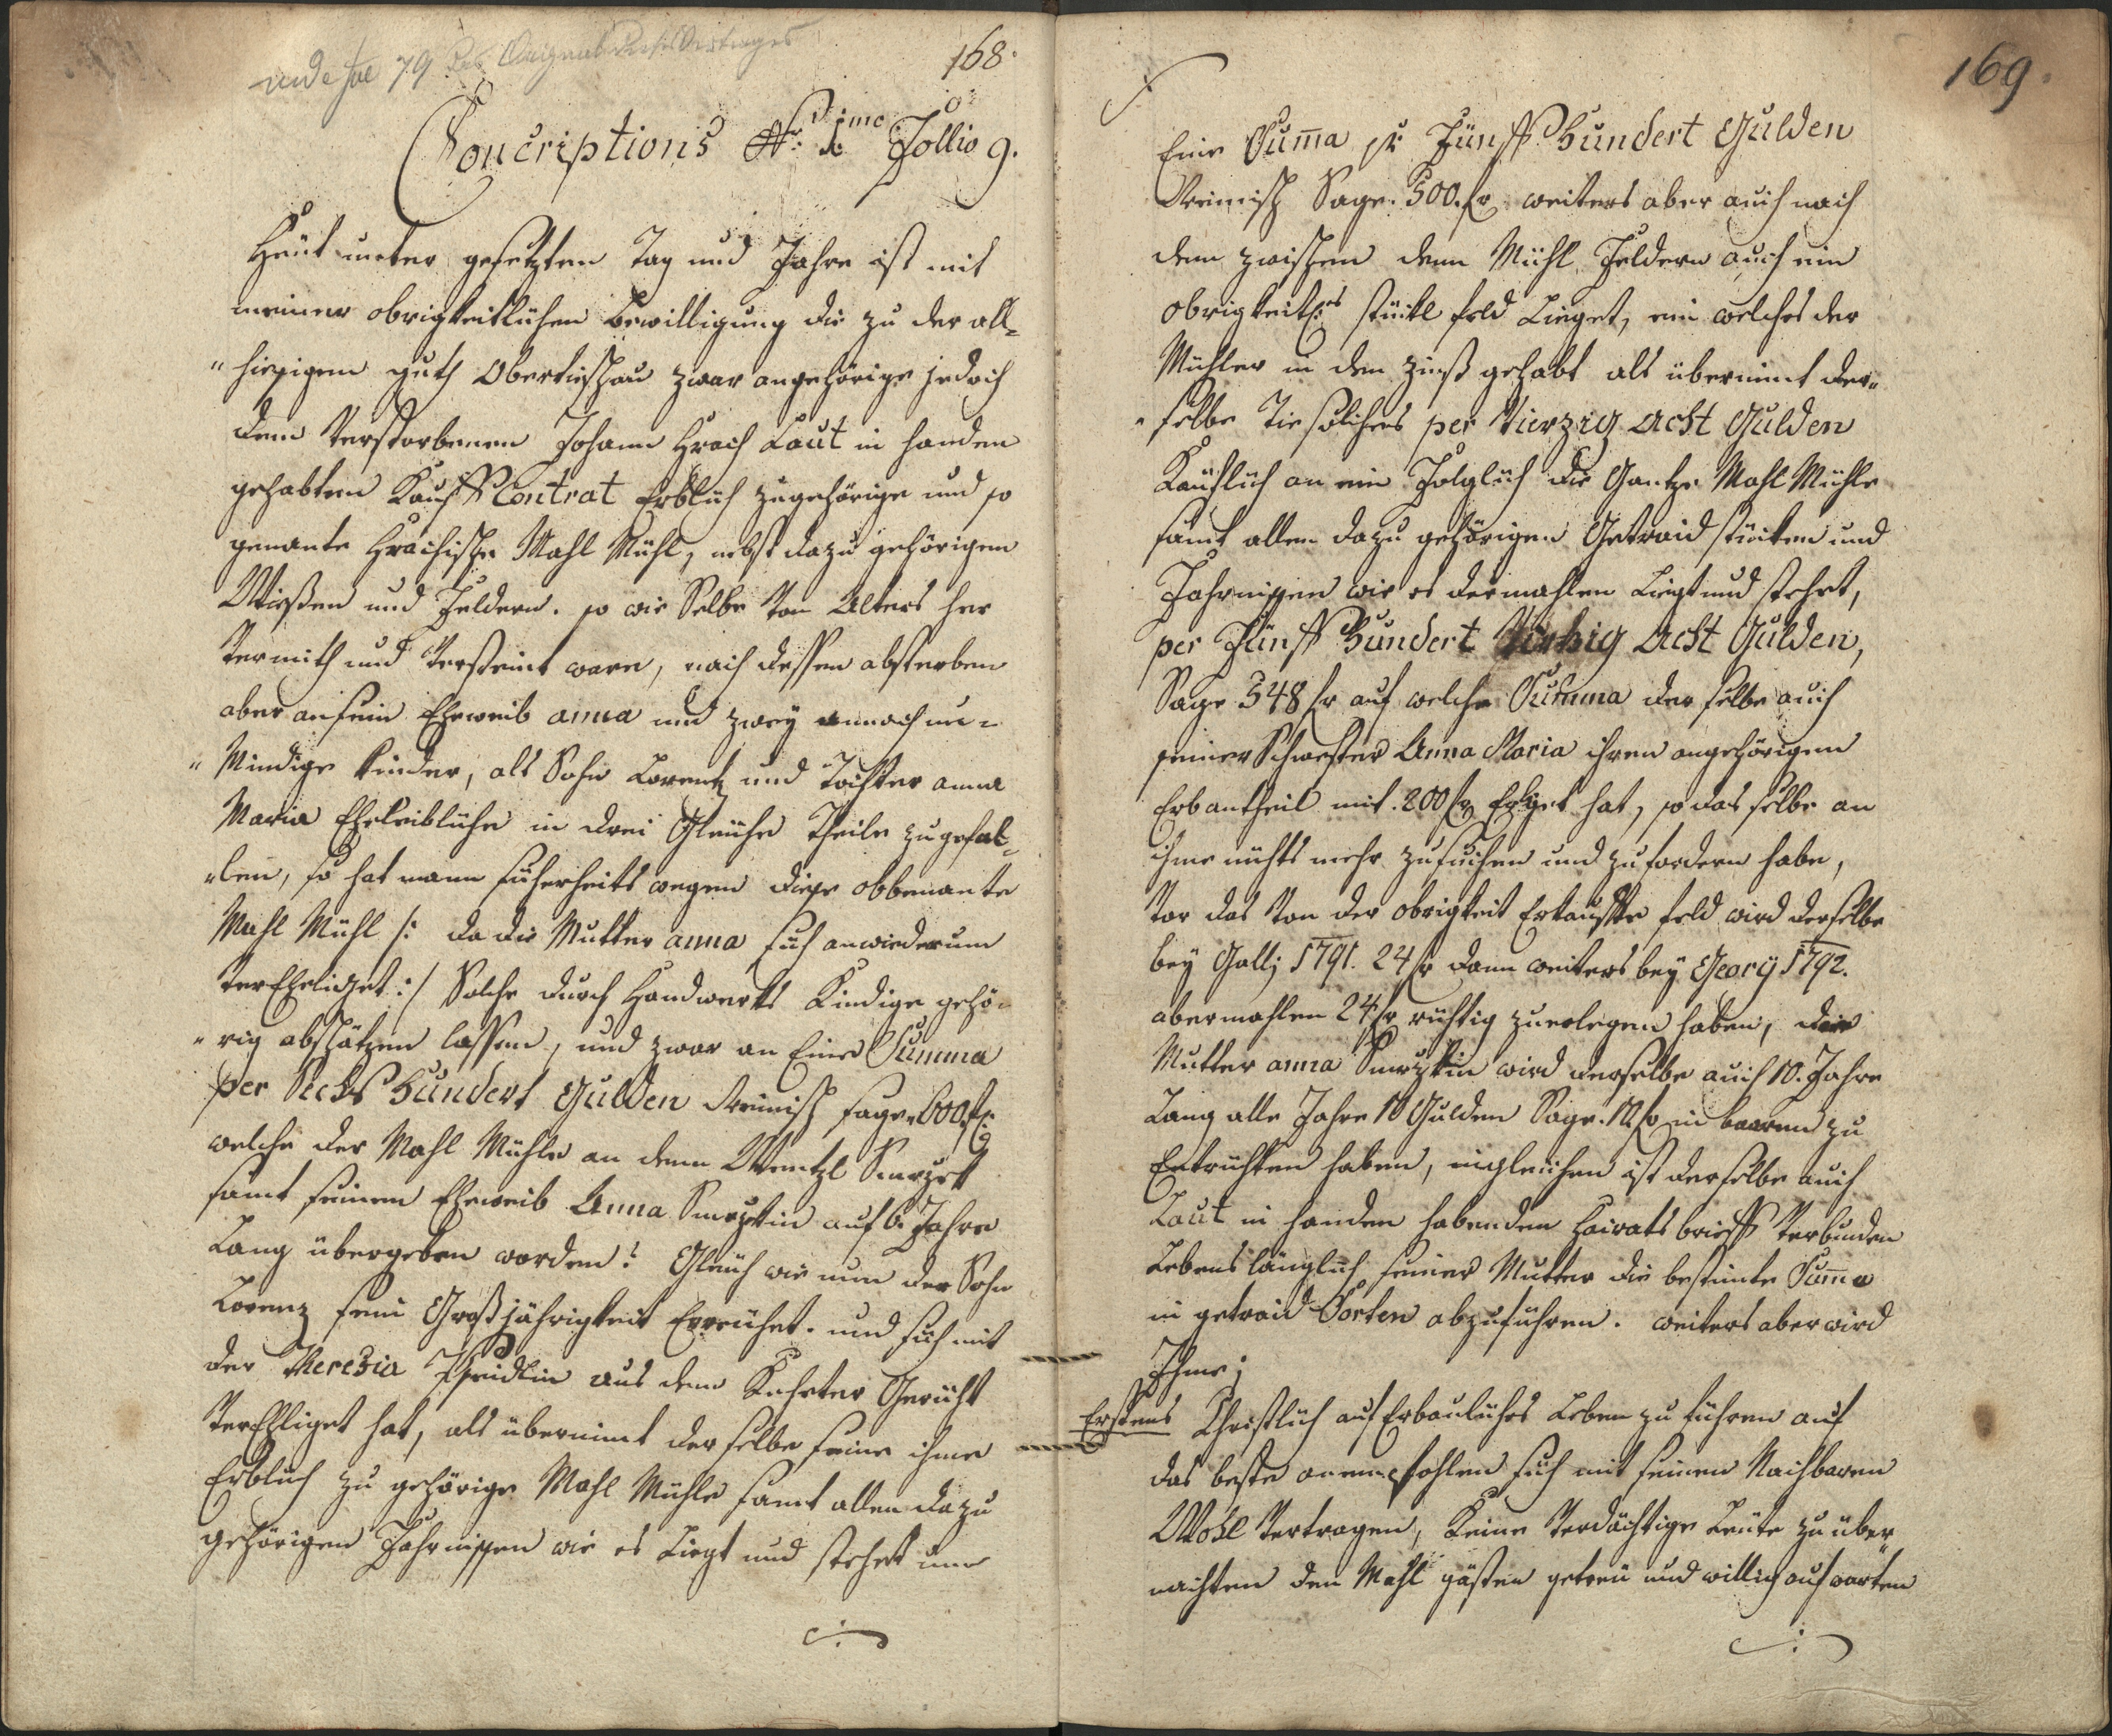 168.
vide fol 79 des Original Kaufs Vertrages
Concriptions Nr: 1 Follio 9.
Heüt unter gesetzten Tag und Jahre ist mit
meiner obrigkeitlichen Bewilligung die zu der all=
"hiesigem guth Obertieschau zwar angehörige jedoch
dem Verstorbenen Johann Hrach Laut in handen
gehabten Kauff Contrat Erblich zugehörige und so
genante Hrachische Mahl Mühl, nebst dazu gehörigen
Wießen und Feldern. so wie Selbe von Alters her
vermith und versteint ware, nach dessen absterben
aber an sein Eheweib anna und zwey annoch un=
"Mindige kinder, als Sohn Lorentz und Tochter anna
Maria Eheleibliche in drei Gleiche Theile zugefal=
"len, so hat mann sicherheits wegen diese obbenante
Mahl Mühl /: da die Mutter anna sich anwiederum
verEheliget :/ Solche durch Handwerks Kindige gehö=
"rig abschätzen lassen, und zwar an Eine Summa
per Sechs Hundert Gulden Reinisch sage. 600 fr
welche der Mahl Mühle an denn Wentzl Smrzek
samt seinem Eheweib Anna Smrzkin auf 6. Jahre
Lang übergeben worden: Gleich wie nun der Sohn
Lorenz sein Großjährigkeit Erreichet. und sich mit
der Theresia aus dem Gericht
verEhliget hat, als übernimt derselbe seine ihme
Erblich zu gehörige Mahl Mühle samt allen dazu
gehörigen Fahrnissen wie es Liegt und stehet um
169.
Eine Suma pr Fünff Hundert Gulden
Reinisch Sage. 500. fr weiters aber auch nach
dem zwischen denn Mühl Feldern auch ein
obrigkeitl: stückl feld Lieget, ein welches der
Mühler in den zinß gehabt als übernimt der=
"selbe solches per Vierzig Acht Gulden
Käuflich an ein Folglich die Gantze Mahl Mühle
samt allen dazu gehörigen Getraid stücken und
Fahrnissen wie es dermahlen Liegt und stehet,
per Fünff Hundert Virzig Acht Gulden,
Sage 548 fr auf welche Summa derselbe auch
seiner Schwester Anna Maria ihren angehörigen
Erbantheil mit. 200 fr Erleget hat, so das selbe an
ihme nichts mehr zu suchen und zu fordern habe,
vor das von der obrigkeit Erkauffte feld wird derselbe
bey Gallj 1791. 24 fr dann weiters bey Georij 1792.
abermahlen 24 fr richtig zuerlegen haben, der
Mutter anna Smrzkin wird derselbe auch 10. Jahre
Lang alle Jahre 10 Gulden Sage. 10 fr in baaren zu
Entrichten haben, ingleichen ist derselbe auch
Laut in handen habenden Heirats brieff Verbunden
Lebens länglich seiner Mutter die bestimte Suma
in getraid Sorten abzuführen. weiters aber wird
Ihme;
Erstens Christlich auf Erbauliches Leben zu führen auf
das beste anempfohlen sich mit seinen Nachbaren
Wohl Vertragen, Keine Verdächtige Leüte zu über=
nachten den Mahl gästen getreü und willig aufwarten